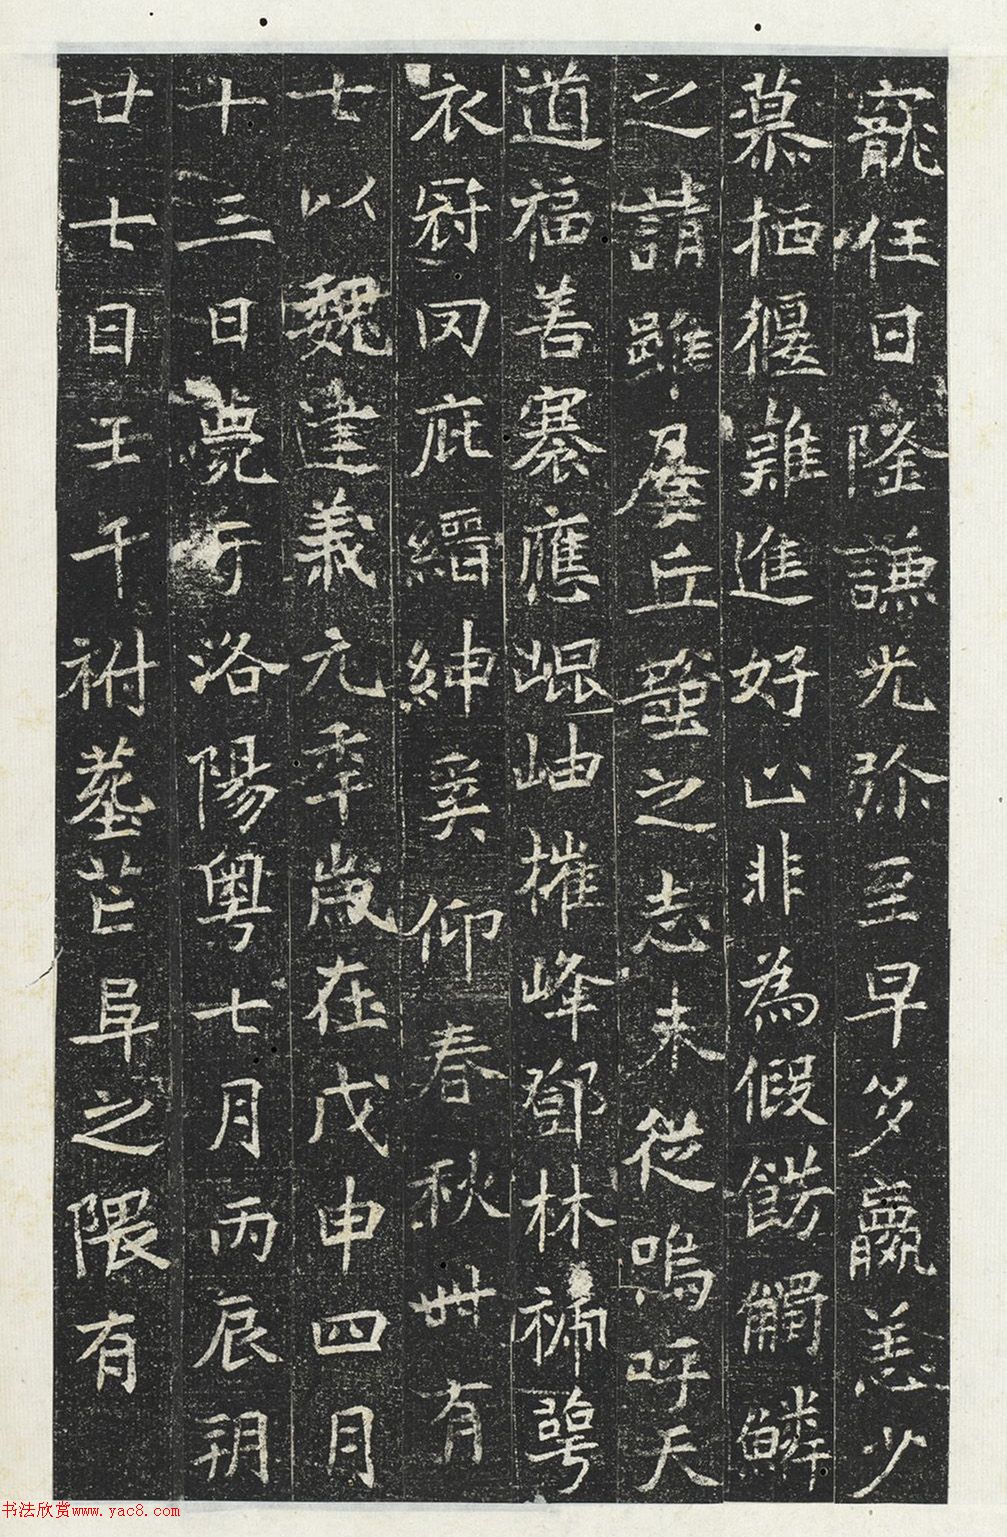 寵任日隆謙光弥至早多羸恙少
慕栖偃難進好山非為假餝觸鱗
之請雖屢丘壑之志未從嗚呼天
道福善褰應崐岫摧峰鄧林褫萼
衣冠罔庇縉紳奚仰春秋卌有
七以魏建義元年歲在戊申四月
十三日薨于洛陽粵七月丙辰朔
廿七日壬午祔塟芒阜之隈有
书法欣赏www.yac8.com